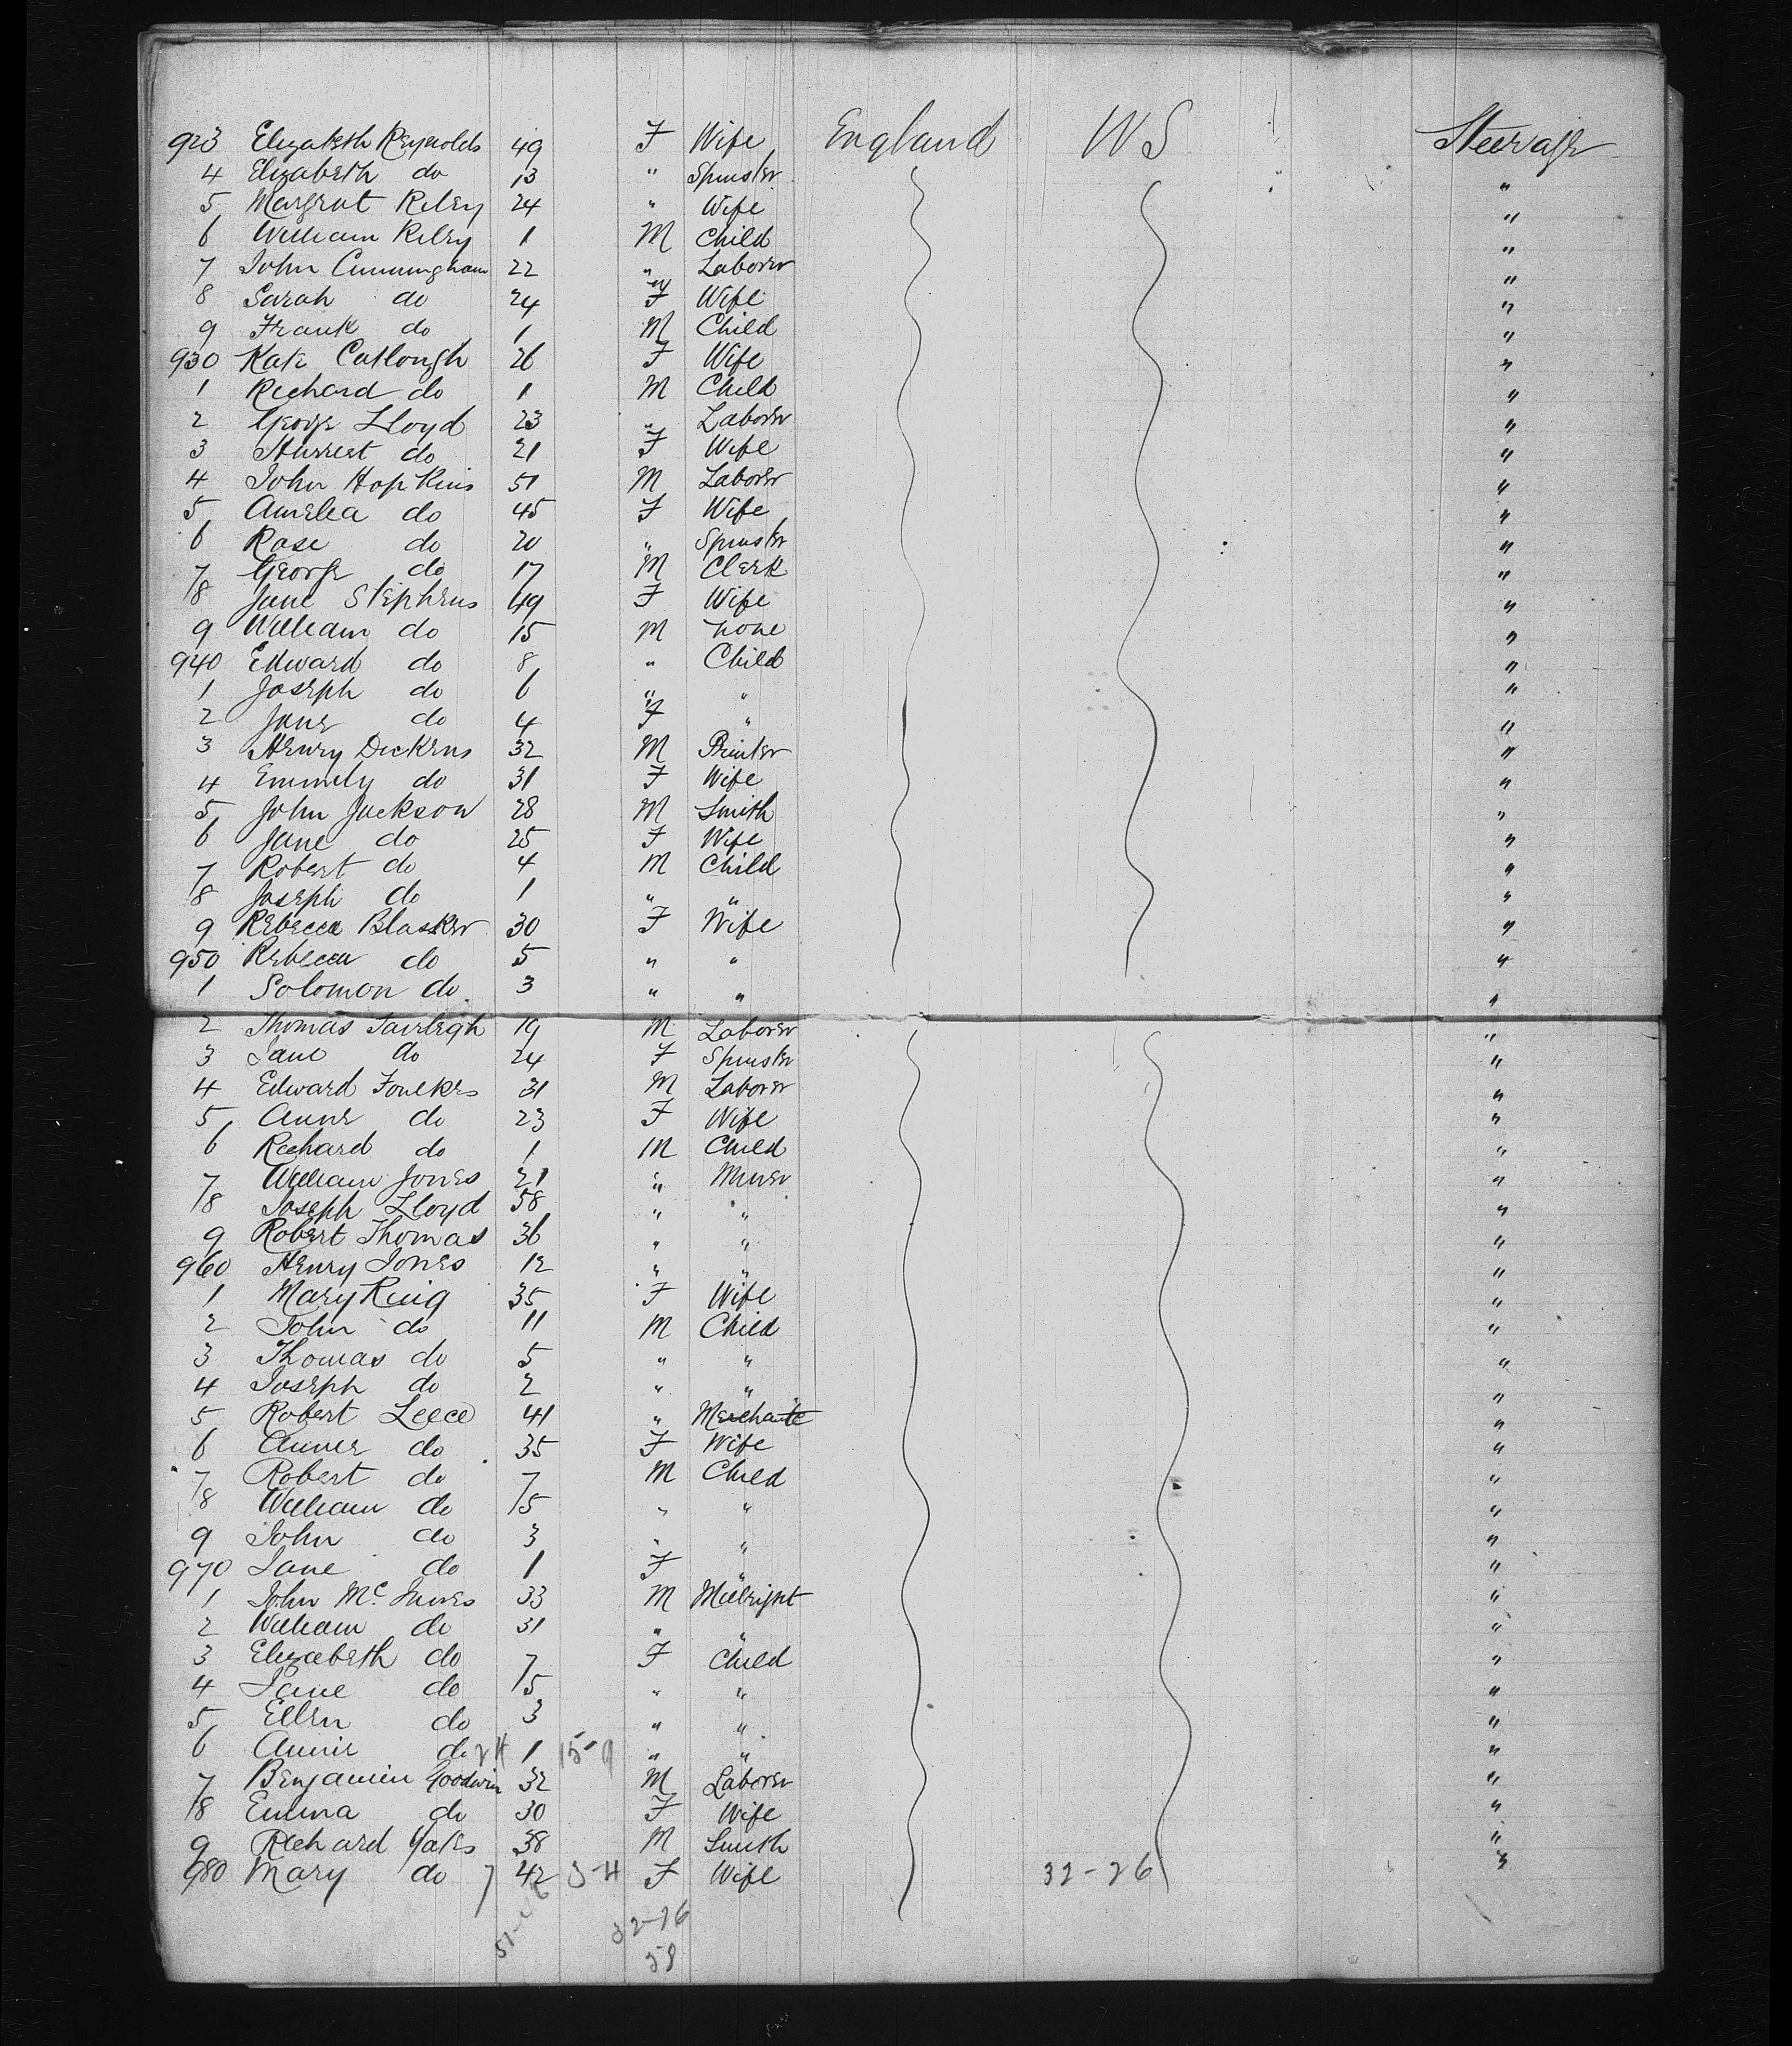 923 Elizabeth Reynolds 49 F Wife England US Steerage
4 Elizabeth do 13 " Spinster "
5 Margrut Riley 24 " Wife "
6 William Riley 1 M Child "
7 John Cunningham 22 " Laborer "
8 Sarah do 24 F Wife "
9 Frank do 1 M Child "
930 Kate Catlough 26 F Wife "
1 Richard do 1 M Child "
2 George Lloyd 23 " Laborer "
3 Harriet do 21 F Wife "
4 John Hopkins 51 M Laborer "
5 Amelia do 45 F Wife "
6 Rose do 20 " Spinster "
7 George do 17 M Clerk "
8 Jane Stephens 49 F Wife "
9 William do 15 M none "
940 Edward do 8 " Child "
1 Joseph do 6 " " "
2 Jane do 4 F " "
3 Henry Dickens 32 M Printer "
4 Emmily do 31 F Wife "
5 John Jackson 28 M Smith "
6 Jane do 25 F Wife "
7 Robert do 4 M Child "
8 Joseph do 1 " " "
9 Rebecca Blasker 30 F Wife "
950 Rebecca do 5 " " "
1 Solomon do 3 " " "
2 Thomas Fairlegh 19 M Laborer "
3 Jane do 24 F Spinster "
4 Edward Foulkes 31 M Laborer "
5 Anne do 23 F Wife "
6 Richard do 1 M Child "
7 William Jones 21 " Miner "
8 Joseph Lloyd 58 " " "
9 Robert Thomas 36 " " "
960 Henry Jones 12 " " "
1 Mary King 35 F Wife "
2 John do 11 M Child "
3 Thomas do 5 " " "
4 Joseph do 2 " " "
5 Robert Leece 41 " "
6 Annie do 35 F Wife "
7 Robert do 7 M Child "
8 William do 5 " " "
9 John do 3 " " "
970 Jane do 1 F " "
1 John Mc Innes 33 M Milright "
2 William do 31 " " "
3 Elizabeth do 7 F Child "
4 Jane do 5 " " "
5 Ellen do 3 " " "
6 Annie do 24 1 15-9 " " "
7 Benjamin Goodwin 32 M Laborer "
8 Emma do 30 F Wife "
9 Richard Yates 38 M Smith "
980 Mary do 7 42 3-4 F Wife 32-26 "
32-26
58